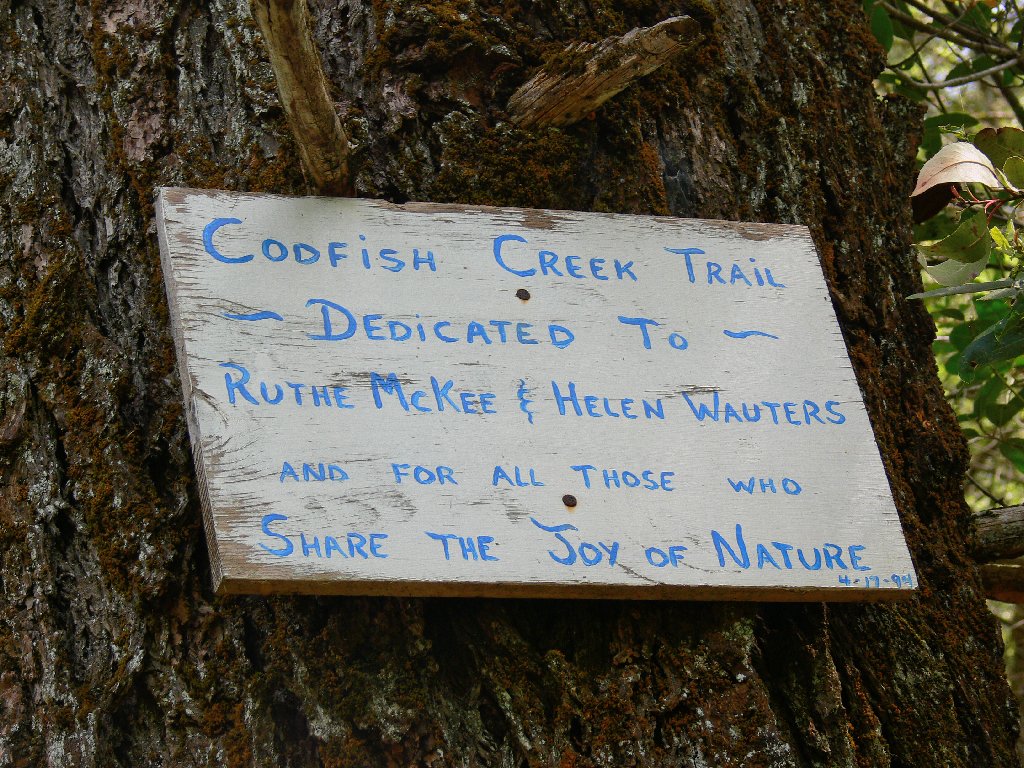 Codfish Creek Trail
~ Dedicated To ~
Ruthe McKee & Helen Wauters
and for all those who
Share the Joy of Nature
4-17-94